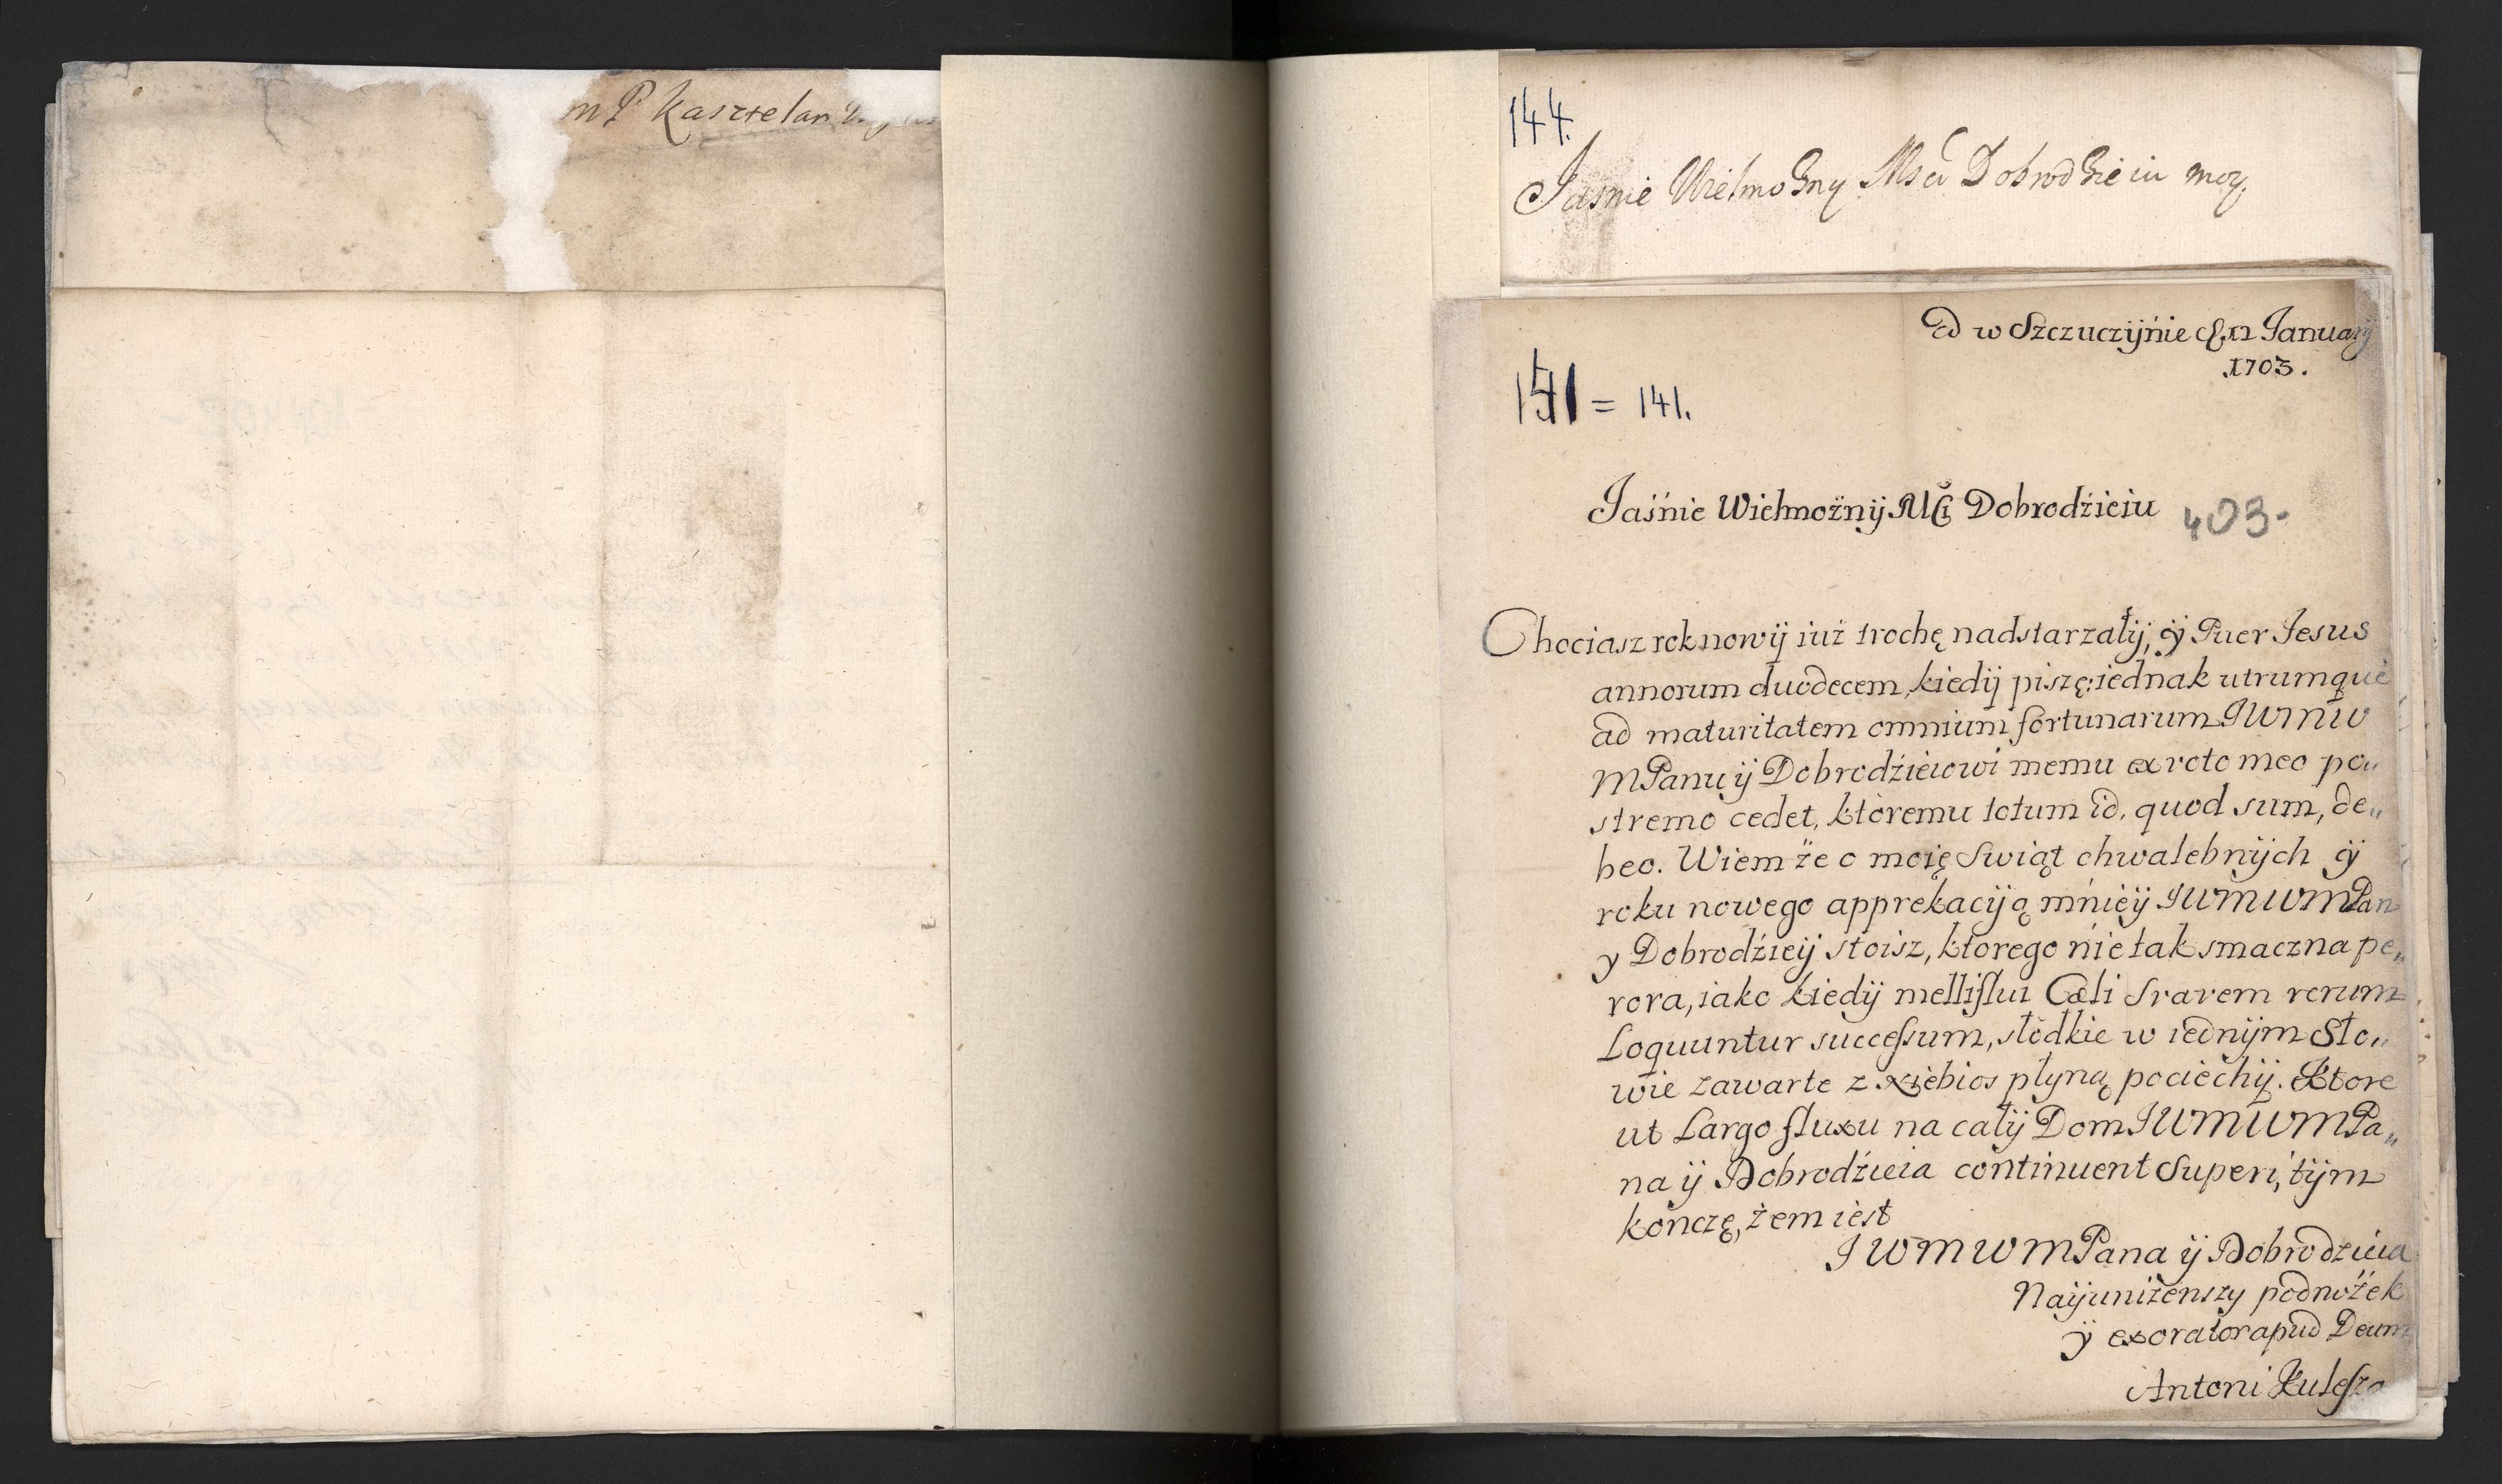 mP Kasztelan
144.
Jasnie Wielmozny Mści Dobrodzieiu moy
D w Szczuczyńie d 12 January
1703.
141 = 141.
Jaśnie Wielmożnÿ Mći Dobrodźieiu
403-
Chociasz rok nowÿ iuż trochę nadstarzałÿ, ÿ Puer Jesus
annorum duodecem, kiedÿ piszę: iednak utrumque
ad maturitatem omnium fortunarum JWMW
MPanu ÿ Dobrodźieiowi memu ex voto meo po„
stremo cedet, ktoremu totum id, quod sum, de„
beo. Wiem że o moię Swiąt chwalebnÿch ÿ
roku nowego apprekacÿą mnieÿ JWMWMPan
y Dobrodźieÿ stoisz, ktorego nie tak smaczna pe„
rora, iako kiedÿ melliflui Cœli Svavem rerum
Loquuntur successum, słodkie w iednÿm Sło„
wie zawarte z Niebios płyną pociechÿ. Ktore
ut Largo fluxu na całÿ Dom JWMWMPa„
na ÿ Dobrodźieia continuent Superi, tÿm
kończę, żem iest
JWMWMPana ÿ Dobrodzieia
Naÿuniżenszy podnożek
ÿ exorator apud Deum
Antoni Kulesza